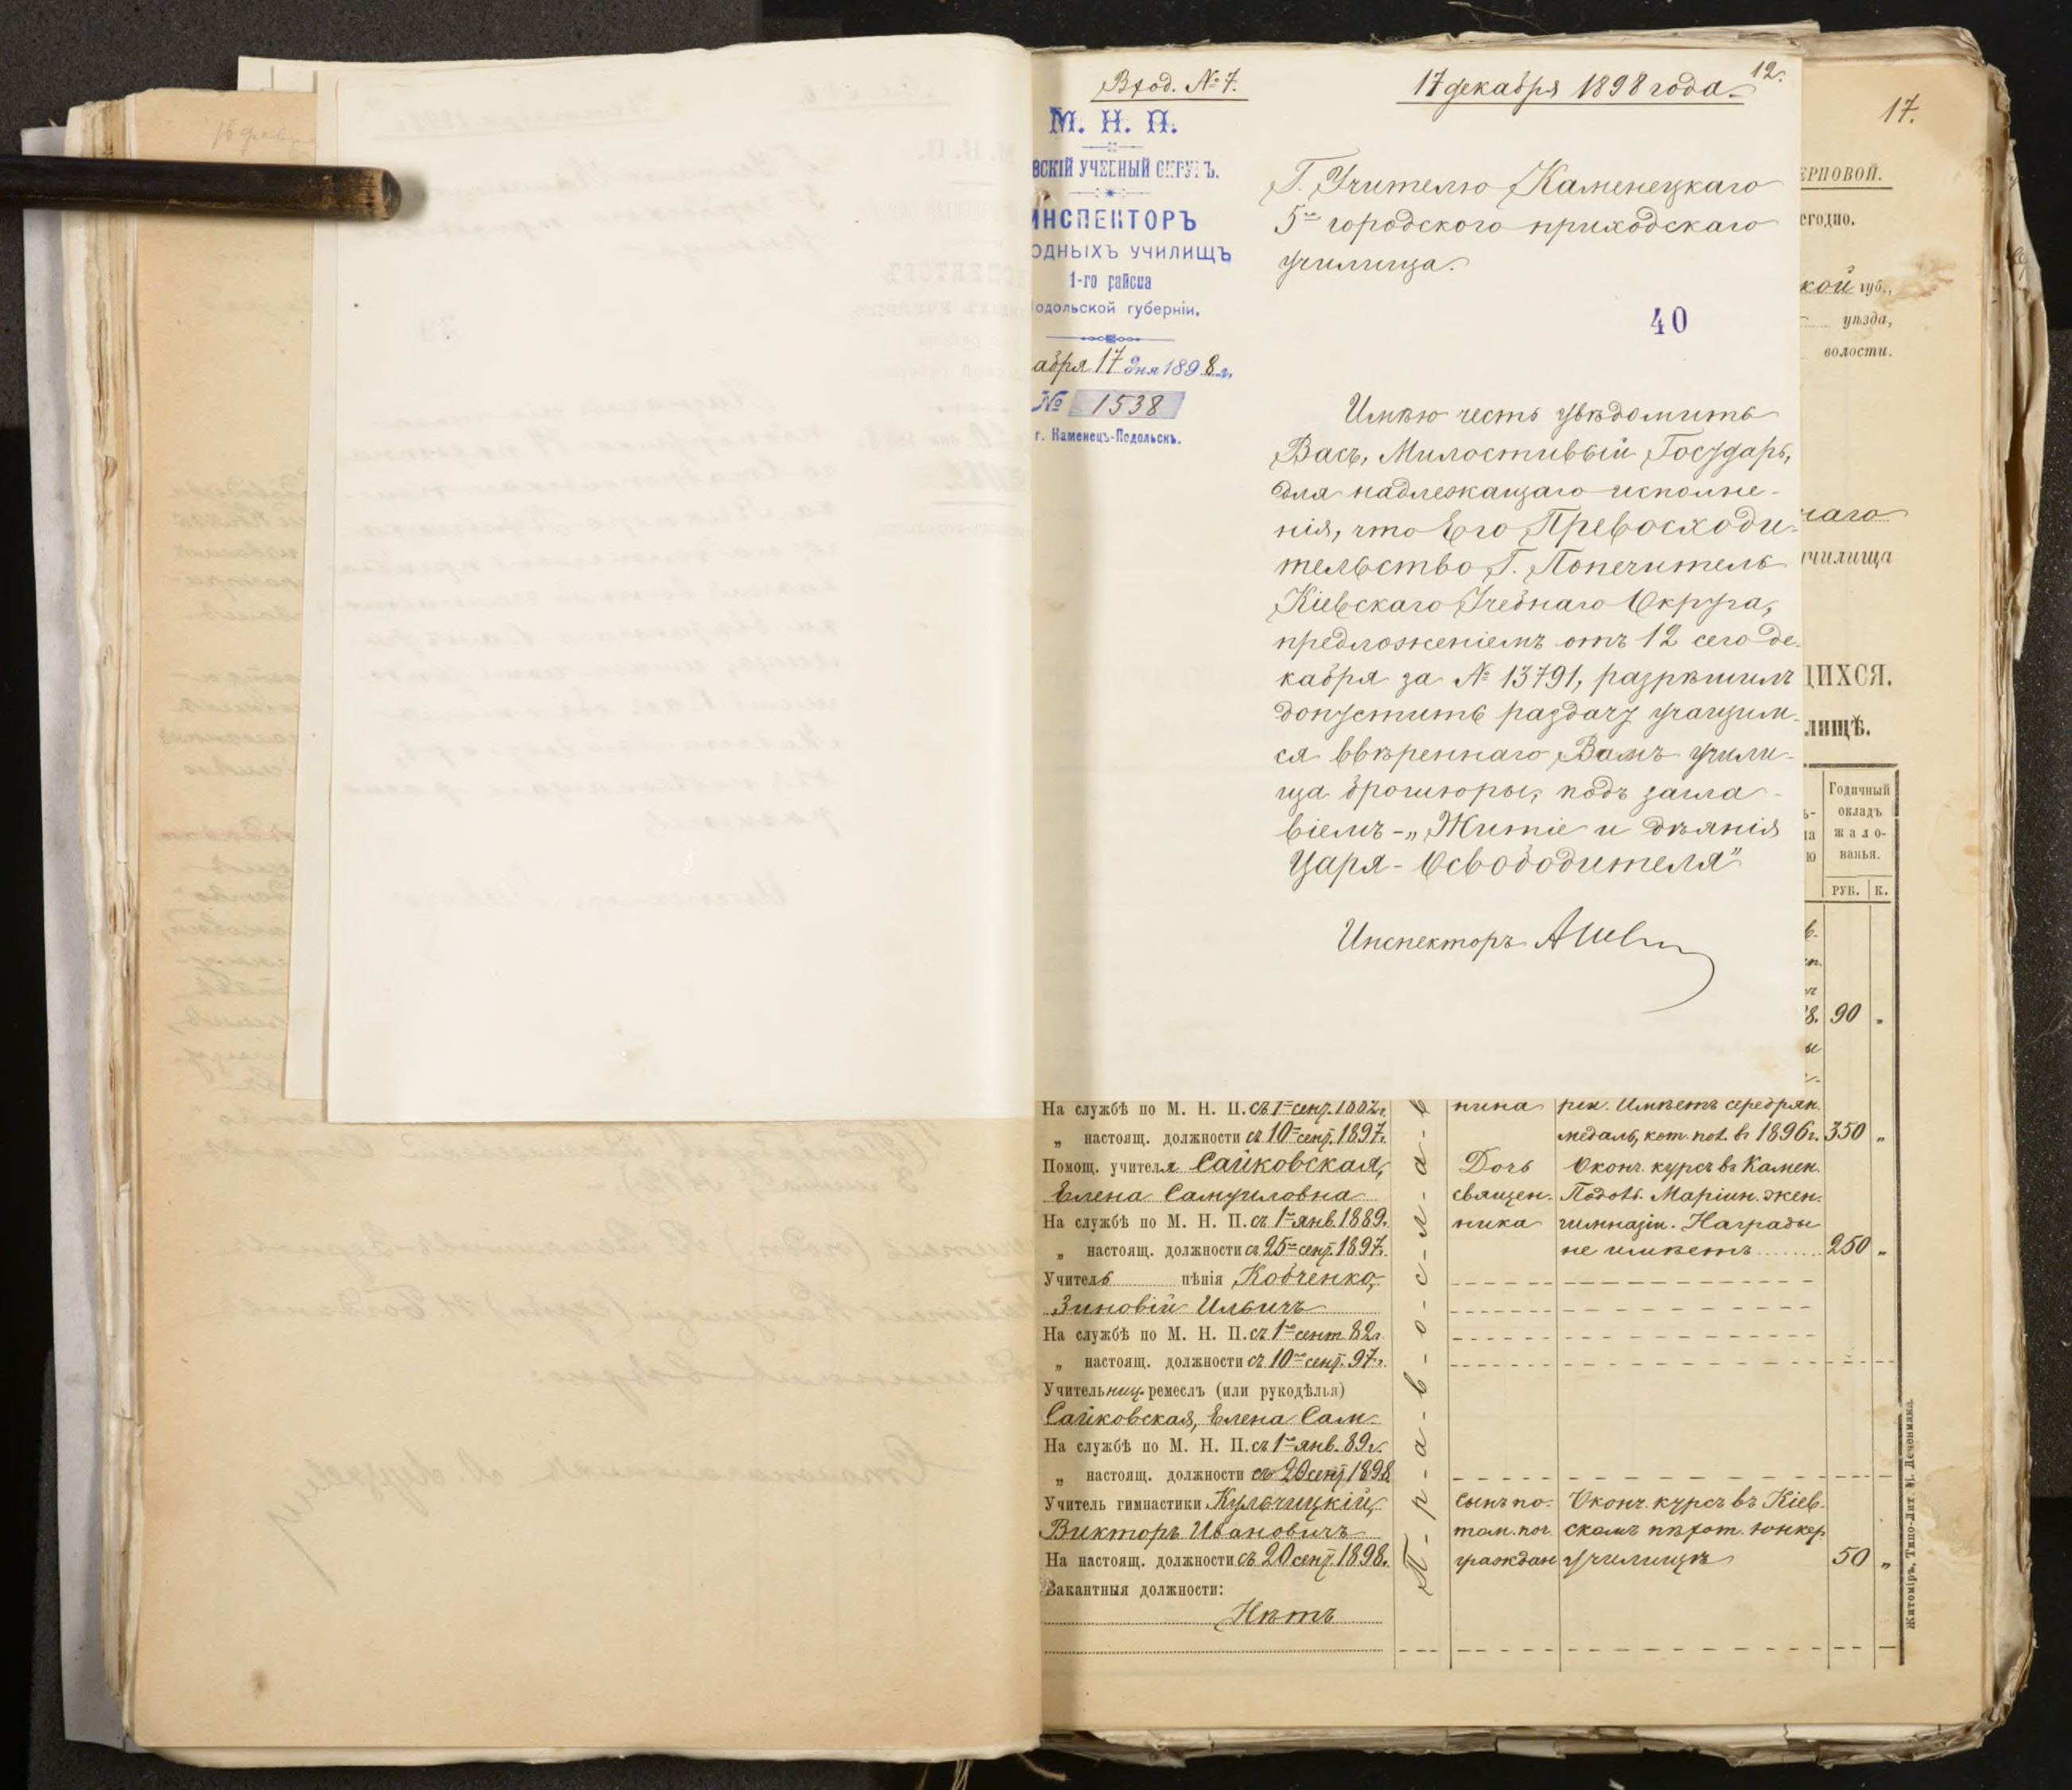 Вход. № 7.
17 декабря 1898 года.
12.
17.
М. Н. П.
ВСКІЙ УЧЕБНЫЙ ОКРУГЪ.
ИНСПЕКТОРЪ
ОДНЫХЪ УЧИЛИЩЪ
1-го района
одольской губерніи.
абря 17 дня 1898 г.
№ 1538
г. Каменецъ-Подольскъ.
Г. Учителю Каменецкаго
5го городского приходскаго
училища.
40
Имѣю честь увѣдомить
Васъ, Милостивый Государь,
для надлежащаго исполне-
нія, что Его Превосходи-
тельство Г. Попечитель
Кіевскаго Учебнаго Округа,
предложеніемъ отъ 12 сего де-
кабря за № 13791, разрѣшилъ
допустить раздачу учащим-
ся ввѣреннаго Вамъ учили-
ща брошюры, подъ загла-
віемъ - „Житіе и дѣянія
Царя-Освободителя"
Инспекторъ
ЕРПОВОЙ.
егодно.
кой губ.,
уѣзда,
волости.
наго
училища
ЩИХСЯ.
ЛИЩѢ.
Годичный
окладъ
жало-
ванья.
РУБ. К.
8. 90 „
На службѣ по М. Н. П. съ 1го сент. 1882 г. нина рен. Имѣетъ серебрян.
„ настоящ. должности съ 10го сент. 1897 г. медаль, кот. пол. въ 1896 г. 350 „
Помощ. учителя Сайковская, Дочь Оконч. курсъ въ Камен.
Елена Самуиловна священ- Подол. Маріин. жен.
На службѣ по М. Н. П. съ 1го янв. 1889 г. ника гимназіи. Награды
„ настоящ. должности съ 25го сент. 1897 г. не имѣетъ 250 „
Учитель пѣнія Кобченко,
Зиновій Ильичъ
На службѣ по М. Н. П. съ 1го сент. 82 г.
„ настоящ. должности съ 10го сент. 97 г.
Учительниц. ремеслъ (или рукодѣлья)
Сайковская, Елена Сам.
На службѣ по М. Н. П. съ 1го янв. 89 г.
„ настоящ. должности съ 20 сент. 1898
Учитель гимнастики Кульчицкій, Сынъ по- Оконч. курсъ въ Кіев-
Викторъ Ивановичъ том. поч. скомъ пѣхот. юнкер.
На настоящ. должности съ 20 сент. 1898 г. граждан училищѣ 50 „
Вакантныя должности:
Нѣтъ
П-р-а-в-о-с-л-а-в
Житоміръ, Типо-Лит. М. Дененмана.